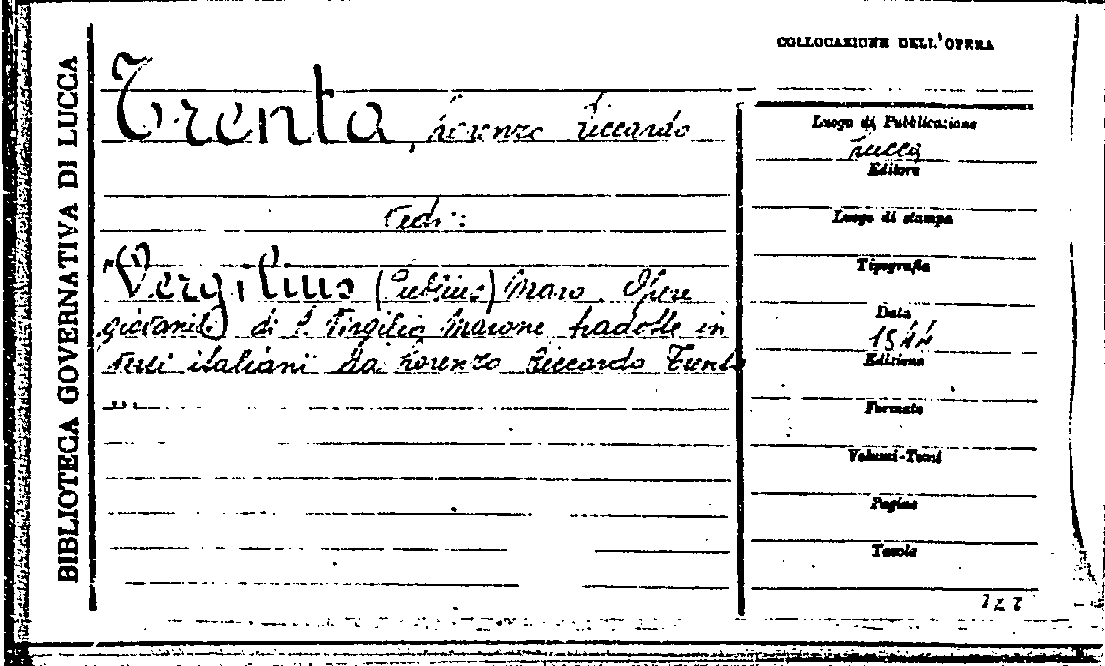 BIBLIOTECA GOVERNATIVA DI LUCCA
COLLOCAZIONE DELL'OPERA
Trenta, Lorenzo Riccardo
Vedi:
Vergilius (Publius) Maro. Opere
giovanili di P. Virgilio Marone tradotte in
versi italiani da Lorenzo Riccardo Trenta
...
Luogo di Pubblicazione
Lucca
Editore
Luogo di stampa
Tipografia
Data
Edizione
Formato
Volumi-Tomi
Pagine
Tavole